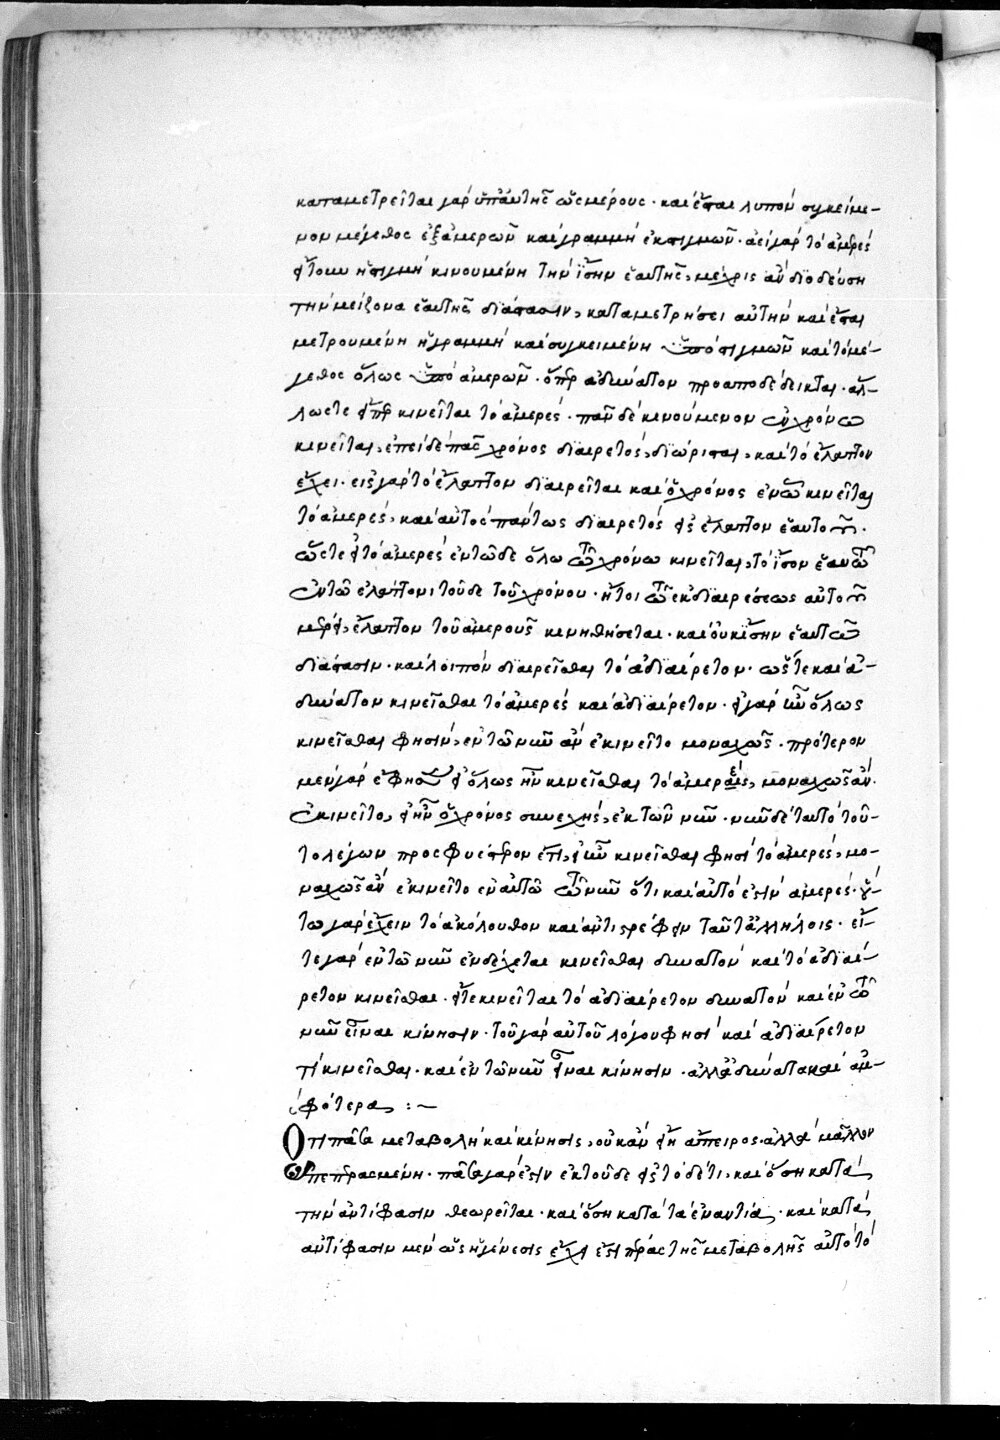 καταμετρεῖται γὰρ ὑπ' αὐτῆς ὡς μέρους· καὶ ἔσται λυπὸν συγκείμε-
νον μέγεθος ἐξ ἀμερῶν καὶ γραμμὴ ἐκ στιγμῶν· ἀεὶ γὰρ τὸ ἀμερὲς
ἤτοι ἡ στιγμὴ κινουμένη τὴν ἴσην ἑαυτῆς, μέχρις ἂν διοδεύση
τὴν μείζονα ἑαυτῆς διάστασιν, καταμετρήσει αὐτὴν καὶ ἔσται
μετρουμένη ἡ γραμμὴ καὶ συγκειμένη ὑπὸ στιγμῶν καὶ τὸ μέ-
γεθος ὅλως ὑπὸ ἀμερῶν· ὅπερ ἀδύνατον προαποδέδεικται· ἀλ-
λως τε εἴπερ κινεῖται τὸ ἀμερές· πᾶν δὲ κινούμενον ἐν χρόνω
κινεῖται, ἐπεὶ δὲ πᾶς χρόνος διαιρετός, διώρισται, καὶ τὸ ἔλαττον
ἔχει· εἰς γὰρ τὸ ἔλαττον διαιρεῖται καὶ ὁ χρόνος ἐν ὧ κινεῖται
τὸ ἀμερές, καὶ αὐτὸς πάντως διαιρετὸς εἰς ἔλαττον ἑαυτοῦ·
ὥστε εἰ τὸ ἀμερὲς ἐν τῶδε ὅλω τῶ χρόνω κινεῖται, τὸ ἴσον ἑαυτῶ
ἐν τῶ ἐλάττονι τοῦδε τοῦ χρόνου· ἤτοι τῶ ἐκ διαιρέσεως αὐτοῦ
μέρει, ἔλαττον τοῦ ἀμεροῦς κινηθήσεται· καὶ οὐκ ἴσην ἑαυτῶ
διάστασιν· καὶ λοιπὸν διαιρεῖσθαι τὸ ἀδιαίρετον· ὥστε καὶ ἀ-
δύνατον κινεῖσθαι τὸ ἀμερὲς καὶ ἀδιαίρετον· εἰ γὰρ ἦν ὅλως
κινεῖσθαι φησὶν, ἐν τῶ νῦν ἂν ἐκινεῖτο μοναχῶς· πρότερον
μὲν γὰρ ἔφησεν εἰ ὅλως ἦν κινεῖσθαι τὸ ἀμερὲς, μοναχῶς ἂν
ἐκινεῖτο, εἰ ἦν ὁ χρόνος συνεχὴς, ἐκ τῶν νῦν· νῦν δὲ ταυτὸ τοῦ-
το λέγων προσφυέστερον ἐπὶ, εἰ ἦν κινεῖσθαι φησὶ τὸ ἀμερές, μο-
ναχῶς ἂν ἐκινεῖτο ἐν αὐτῶ τῶ νῦν ὅτι καὶ αὐτὸ ἐστὶν ἀμερές· οὕ-
τω γὰρ ἔχειν τὸ ἀκόλουθον καὶ ἀντιστρέφειν ταῦτ' ἀλλήλοις· εἴ-
τε γὰρ ἐν τῶ νῦν ἐνδέχεται κινεῖσθαι δυνατὸν καὶ τὸ ἀδιαί-
ρετον κινεῖσθαι· εἴτε κινεῖται τὸ ἀδιαίρετον δυνατὸν καὶ ἐν τῶ
νῦν εἶναι κίνησιν· τοῦ γὰρ αὐτοῦ λόγου φησὶ καὶ ἀδιαίρετον
τὶ κινεῖσθαι· καὶ ἐν τῶ νῦν εἶναι κίνησιν· ἀλλ' ἀδύνατα καὶ ἀμ-
φότερα :~
Ὅτι πᾶσα μεταβολὴ καὶ κίνησις, οὐκ ἂν εἴη ἄπειρος· ἀλλὰ μᾶλλον
πεπερασμένη· πᾶσα γάρ ἐστιν ἐκ τοῦδε εἰς τὸ δέ τι, καὶ ὅση κατὰ
τὴν ἀντίφασιν θεωρεῖται· καὶ ὅση κατὰ τὰ ἐναντία· καὶ κατὰ
ἀντίφασιν μὲν ὡς ἡ γένεσις ἔχει ἐστὶ πέρας τῆς μεταβολῆς αὐτὸ τὸ